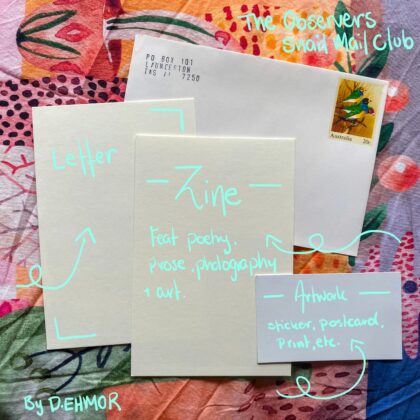 The Observers
Snail Mail Club
PO BOX 101
LAUNCESTON
TAS 7250
Australia
Letter
— Zine —
Feat poetry,
prose, photography
+ art.
— Artwork —
sticker, postcard,
print, etc.
By D.EHMOR